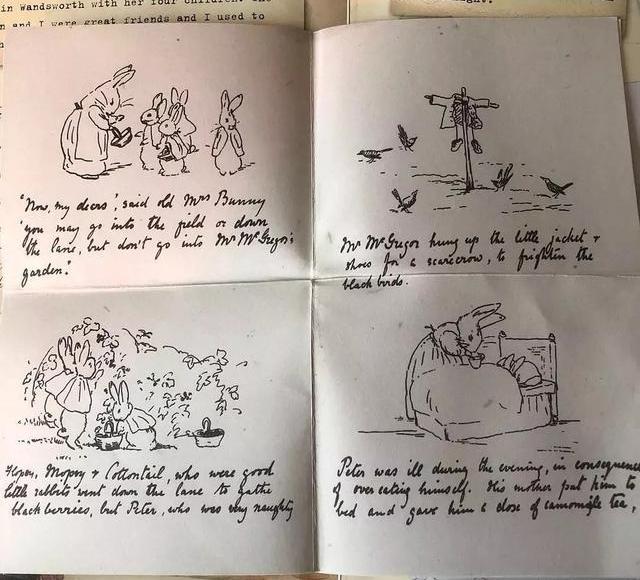 in Wandsworth with her four children. She
and I were great friends and I used to
"Now, my dears', said old Mrs Bunny
'you may go into the field or down
the lane, but don't go into Mr McGregor's
garden.'
Mr McGregor hung up the little jacket +
shoes for a scarecrow, to frighten the
black birds.
Flopsy, Mopsy + Cottontail, who were good
little rabbits went down the lane to gather
blackberries, but Peter, who was very naughty
Peter was ill during the evening, in consequence
of over eating himself. His mother put him to
bed and gave him a dose of camomile tea,